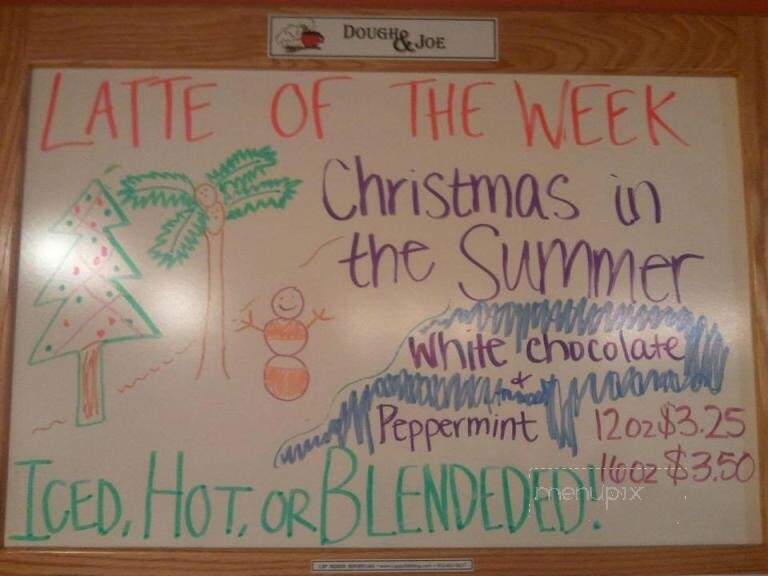 DOUGH & JOE
LATTE OF THE WEEK
Christmas in
the Summer
White chocolate
+
Peppermint
12oz $3.25
16oz $3.50
ICED, HOT, OR BLENDEDED!
menupix